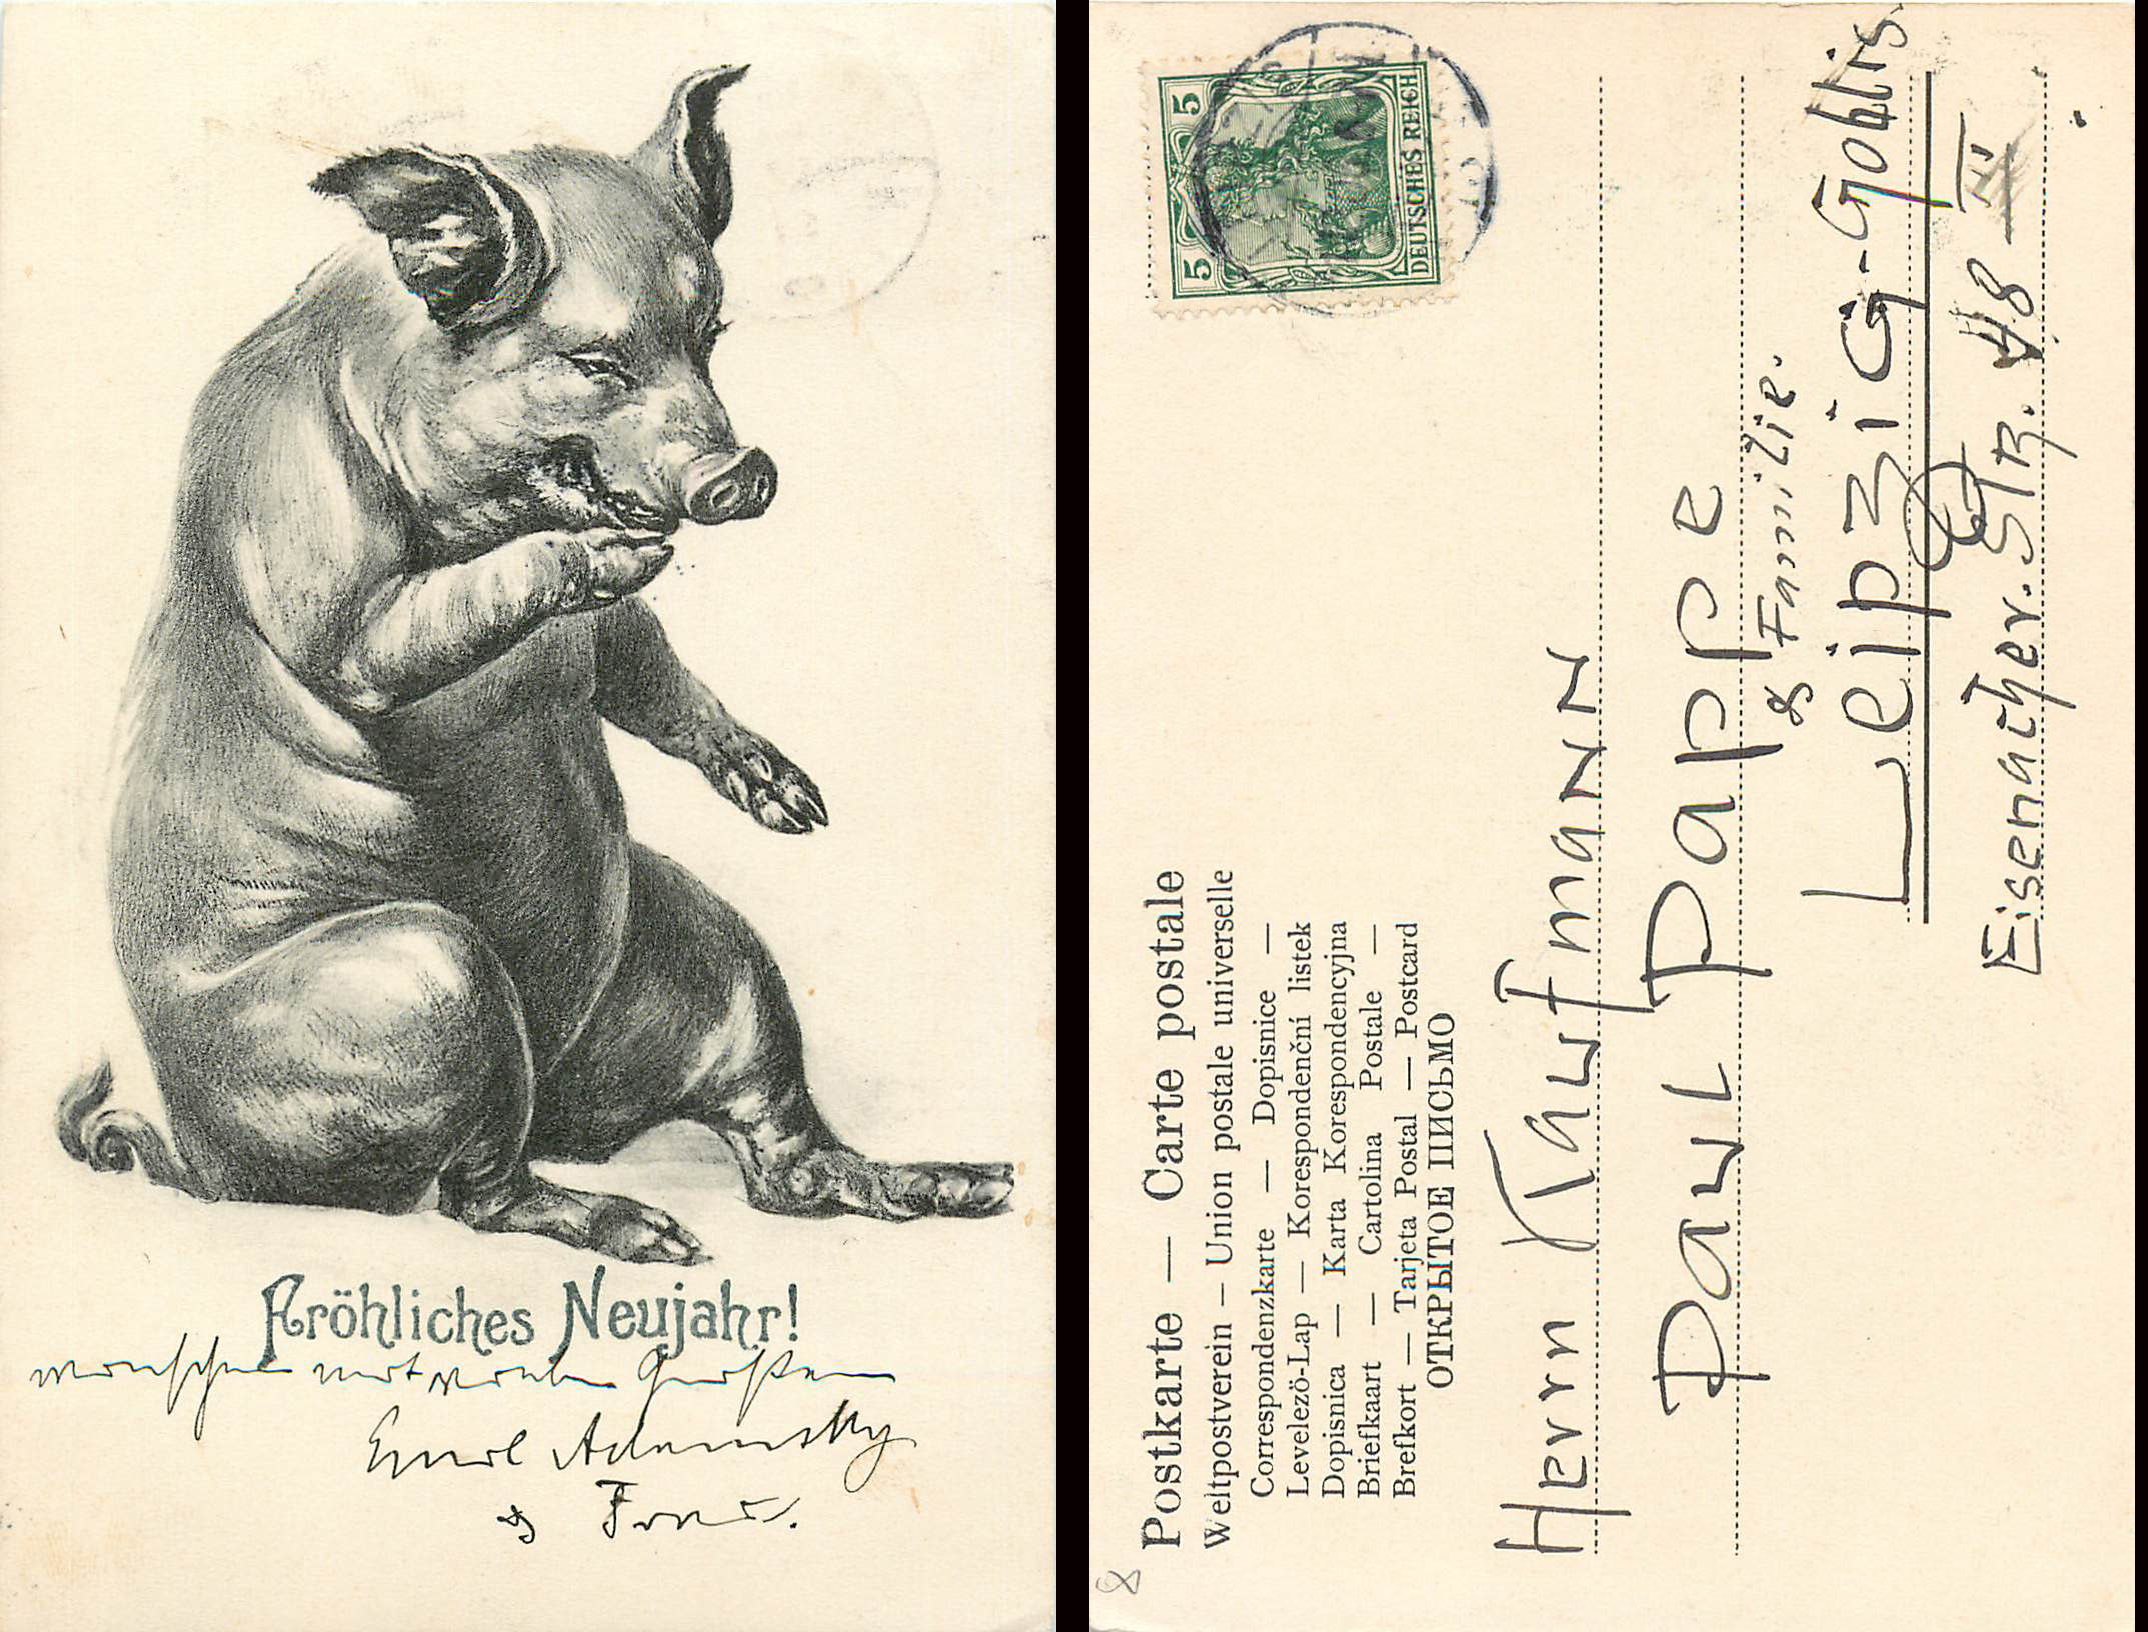 Fröhliches Neujahr!
wünschen mit vielen Grüßen
Emil Adamsky
& Frau.
Postkarte — Carte postale
Weltpostverein — Union postale universelle
Correspondenzkarte — Dopisnice —
Levelező-Lap — Korespondenční listek
Dopisnica — Karta Korespondencyjna
Briefkaart — Cartolina Postale —
Brefkort — Tarjeta Postal — Postcard
ОТКРЫТОЕ ПИСЬМО
5 5
DEUTSCHES REICH
Herrn Kaufmann
Paul Pappe
& Familie.
Leipzig-Gohlis.
Eisenacher. Str. 48 III
8